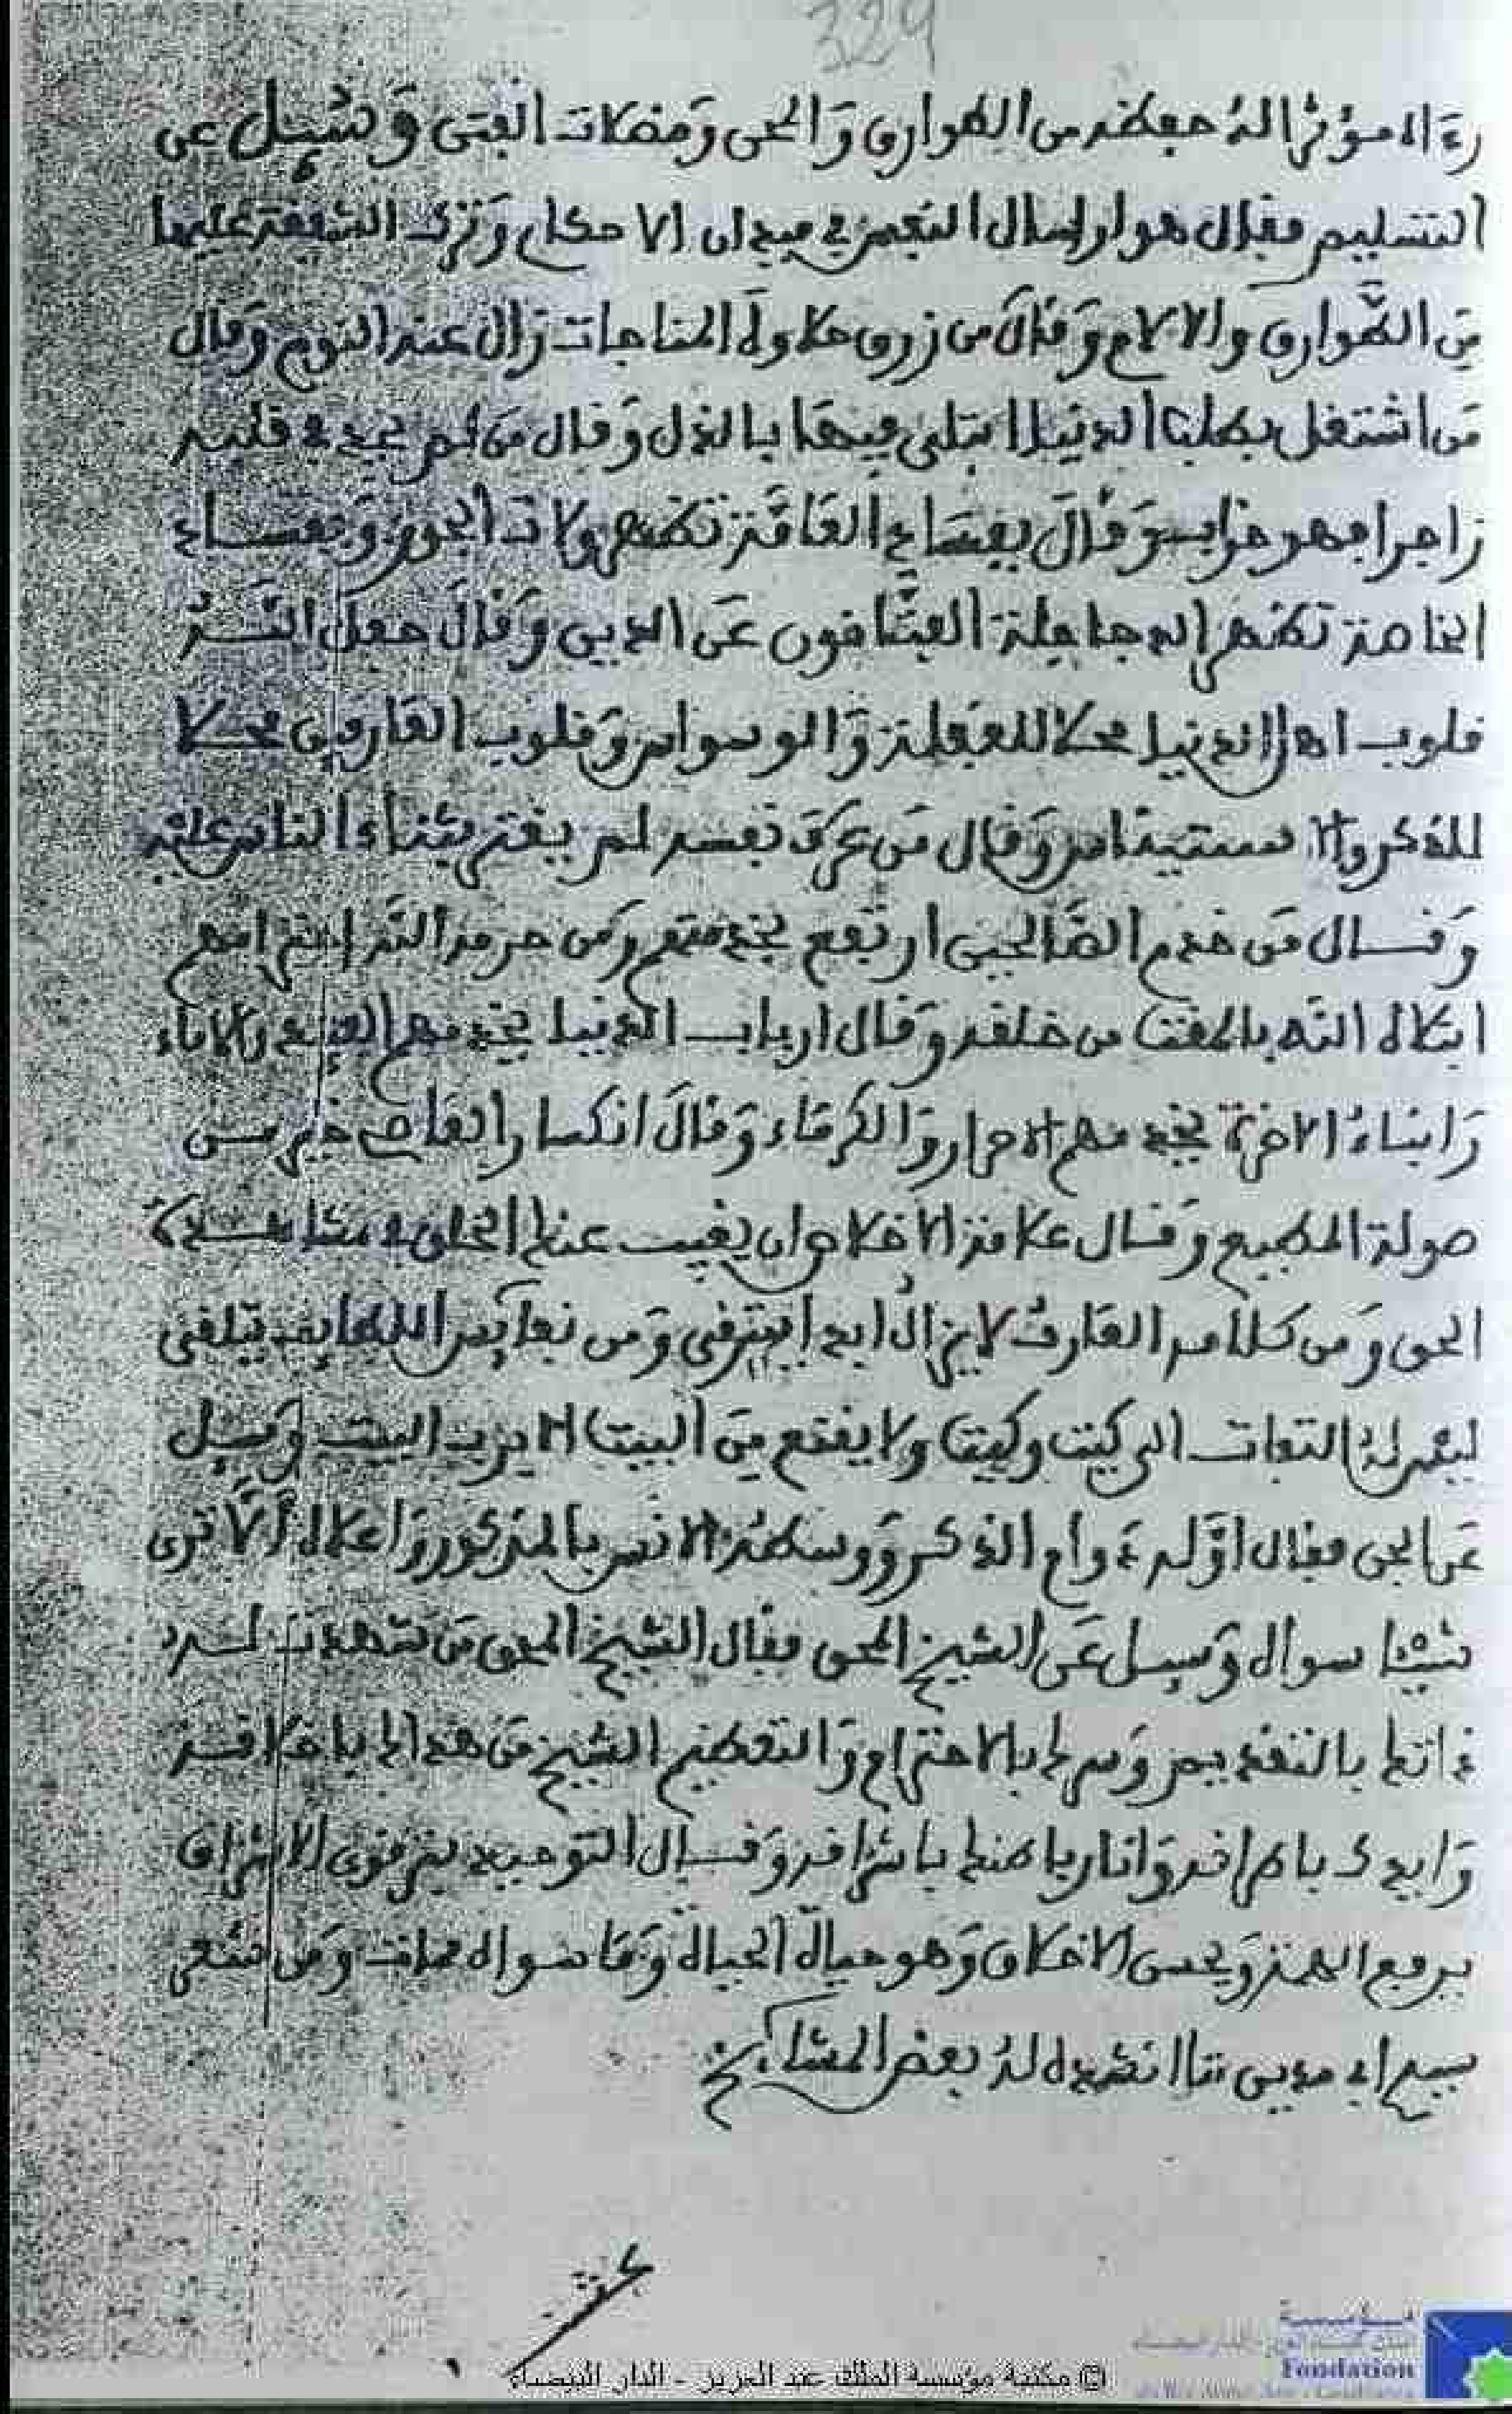 229
رءالا مؤثرا له حفظه من الطوارق والمحن ومضلات الفتن وسيل عن
التسليم فقال هو ارسال النفس في ميدان الاحكام وترك الشفقة عليها
من الطوارق والالام وقال من رزق حلاوة المناجات زال عنه النوم وقال
من اشتغل بطلب الدنيا ابتلي فيها بالذل وقال من لم يجد في قلبه
زاجرا فهو خراب وقال بفساد العامة تظهر ولات الجور وبفساد
الخاصة تظهر دجاجلة الفتانون عن الدين وقال جعل الله
قلوب اهل الدنيا محلا للغفلة والوسواس وقلوب العارفين محلا
للذكر والاستيناس وقال من عرف نفسه لم يغتر بثناء الناس عليه
وقال من خدم الصالحين ارتفع بخدمتهم ومن حرمه الله احترامهم
ابتلاه الله بالمقت من خلقه وقال ارباب الدنيا يخدمهم العبيد والاماء
وابناء الاخرة يخدمهم الاحرار والكرماء وقال انكسار العاصي خير من
صولة المطيع وقال علامة الاخلاص ان يغيب عنك الخلق في مشاهدة
الحق ومن كلامه العارف لا يزال ابدا يترقى ومن نفايس اللطايف يتلقى
ليس له التفات الى كيت وكيت ولا يقنع من البيت الا برب البيت وسيل
عن الحي فقال اوله دوام الذكر ووسطه الانس بالمذكور واعلاه الا ترى
شيئا سواه وسيل عن الشيخ المحق فقال الشيخ المحق من شهدت له
ذاتك بالتقديم وسرك بالاحترام والتعظيم الشيخ من هداك باخلاقه
وايدك باطراقه وانار باطنك باشراقه وقال التوحيد
برفع الهمة وبحسن الاخلاق وهو حياة الحياة وما سواه ممات ومن شعر
سيدي ابي مدين مما انشده له بعض المشايخ
© مكتبة مؤسسة الملك عبد العزيز - الدار البيضاء
Fondation